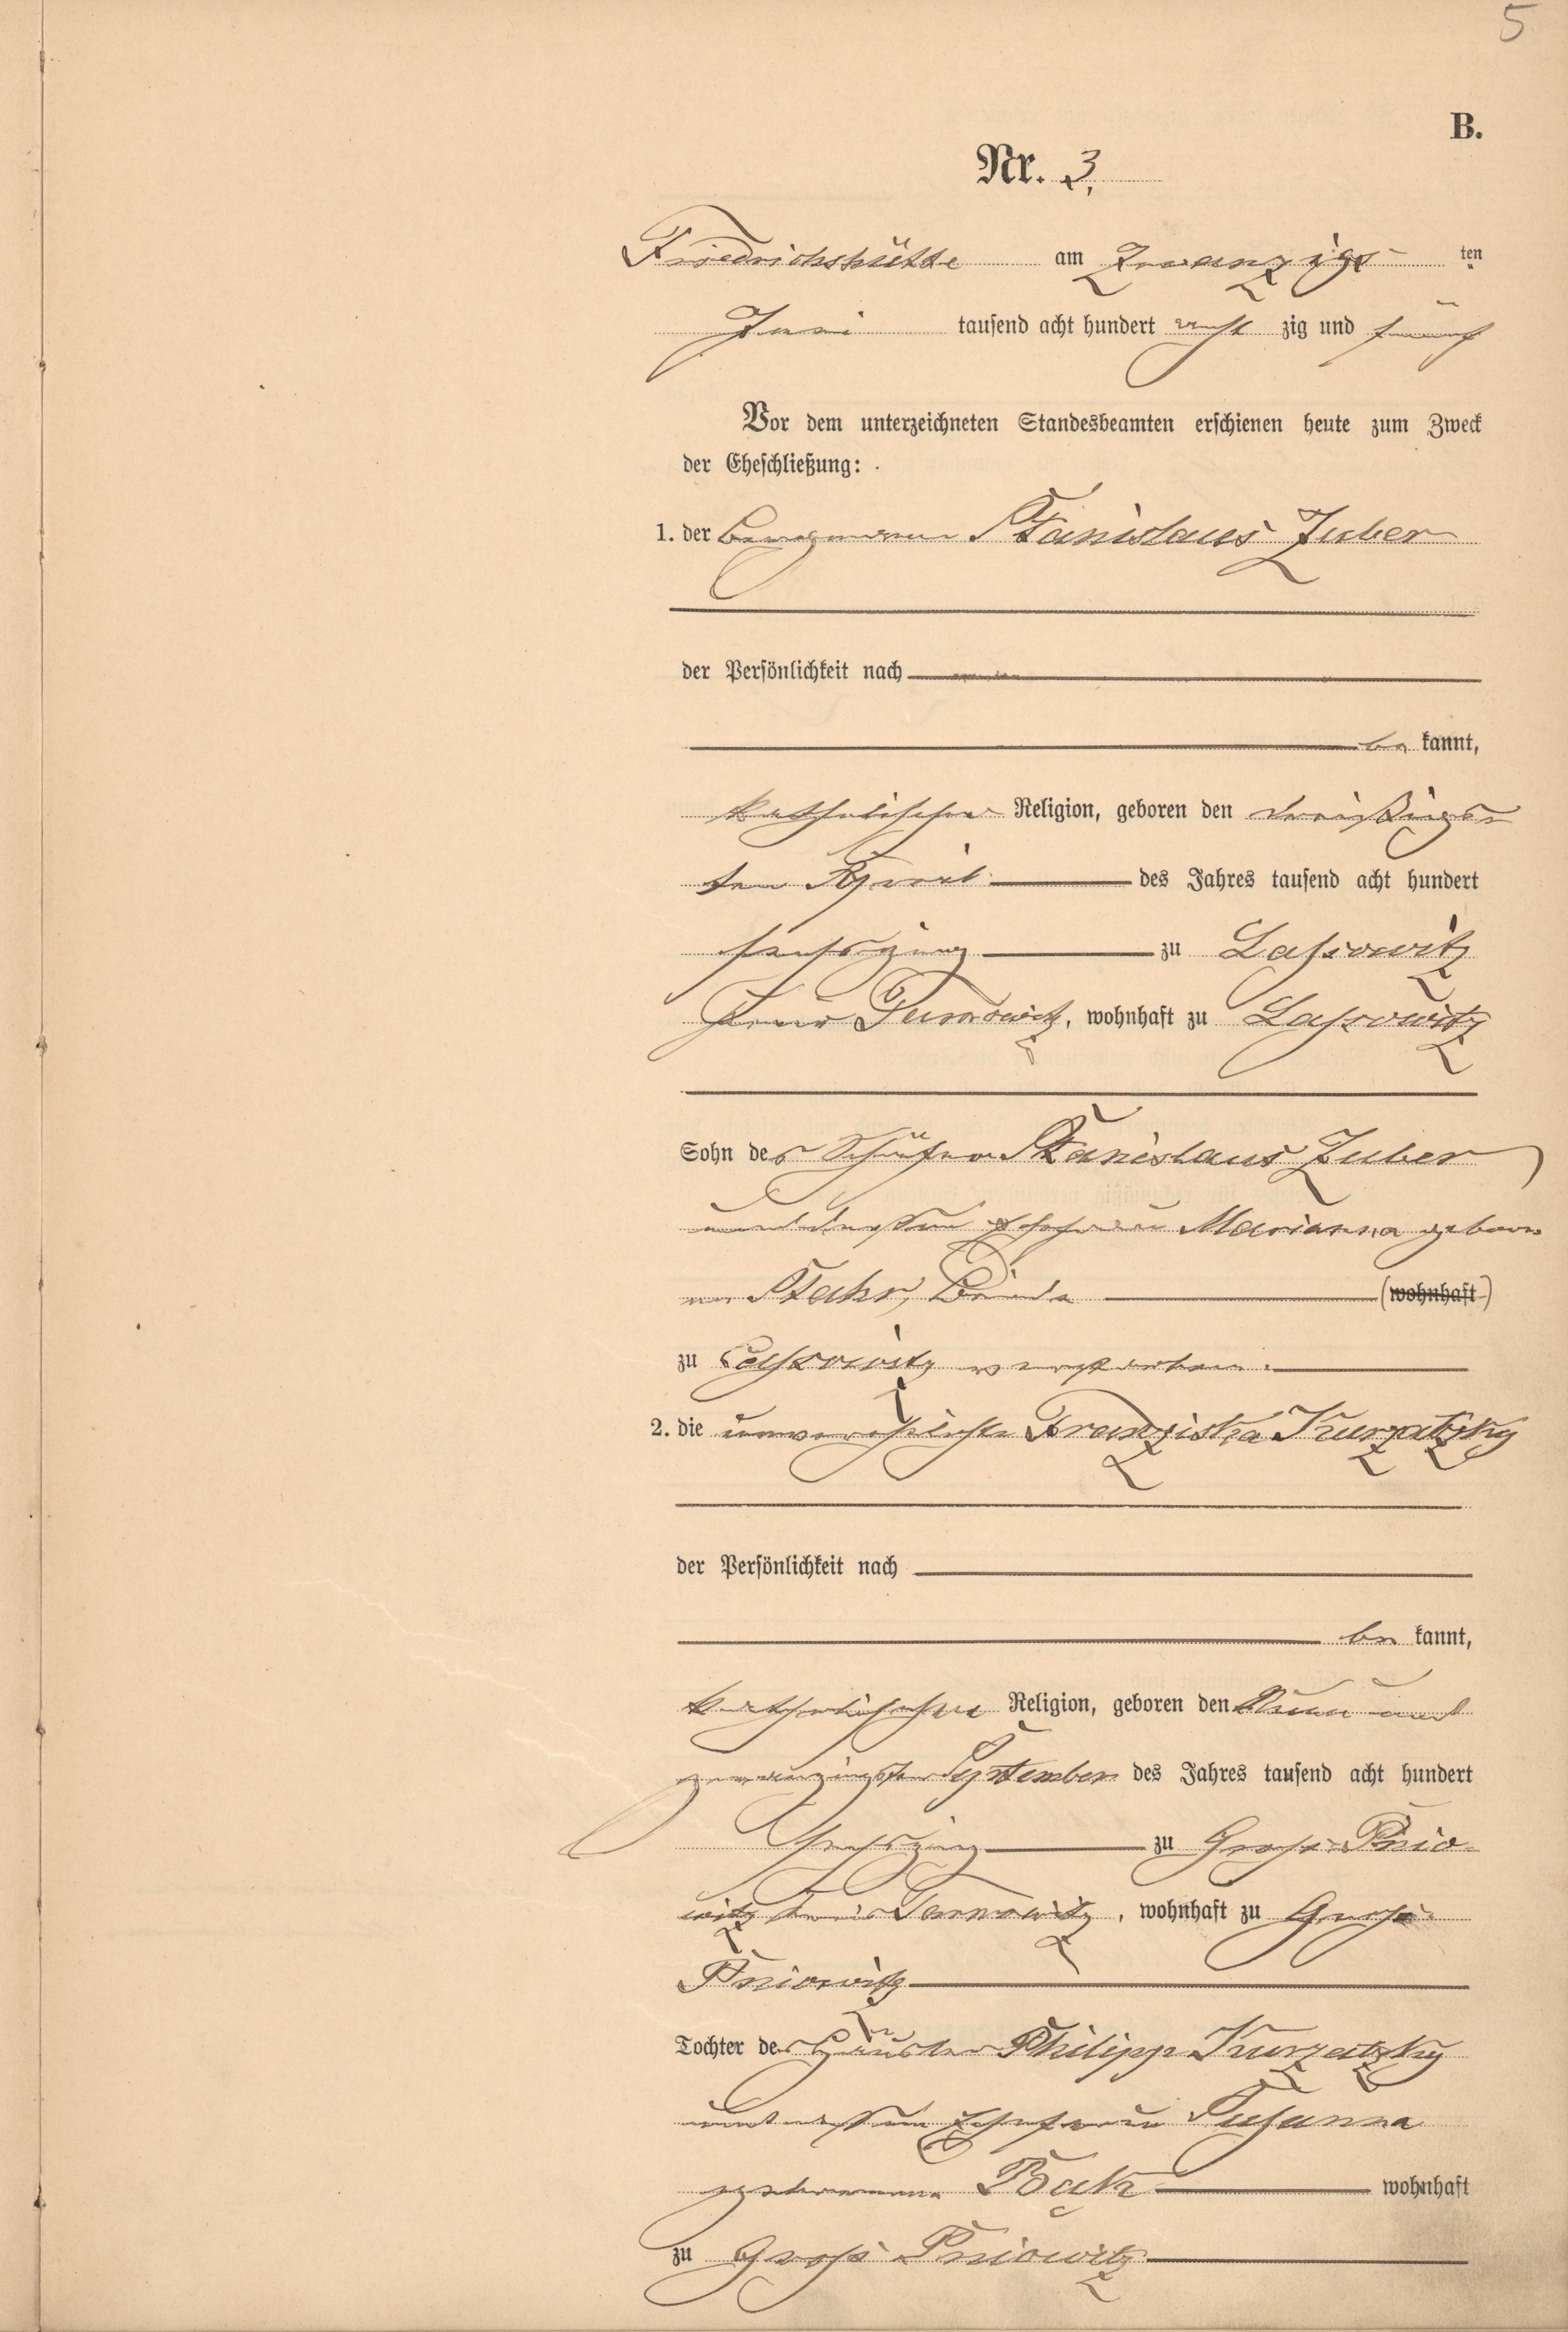 5
B.
Nr. 3.
Friedrichshütte am Zwanzigs ten
Juni tausend acht hundert acht zig und fünf
Vor dem unterzeichneten Standesbeamten erschienen heute zum Zweck
der Eheschließung:
1. der Bergmann Stanislaus Zuber
der Persönlichkeit nach
be kannt,
katholischer Religion, geboren den dreißigs
ten April des Jahres tausend acht hundert
sechszig zu Lassowitz
Kreis Tarnowitz, wohnhaft zu Lassowitz
Sohn des Schäfer Stanislaus Zuber
und dessen Ehefrau Marianna gebore
ne Stahr, Beide (wohnhaft)
zu Lassowitz verstorben.
2. die unverehelichte Franziska Kurzatzky
der Persönlichkeit nach
be kannt,
katholischer Religion, geboren den Neun und
zwanzigsten September des Jahres tausend acht hundert
sechszig zu Gross-Pnio-
witz Kreis Tarnowitz, wohnhaft zu Gross-
Pniowitz
Tochter des Häusler Philipp Kurzatzky
und dessen Ehefrau Susanna
geborene Bąk wohnhaft
zu Gross Pniowitz